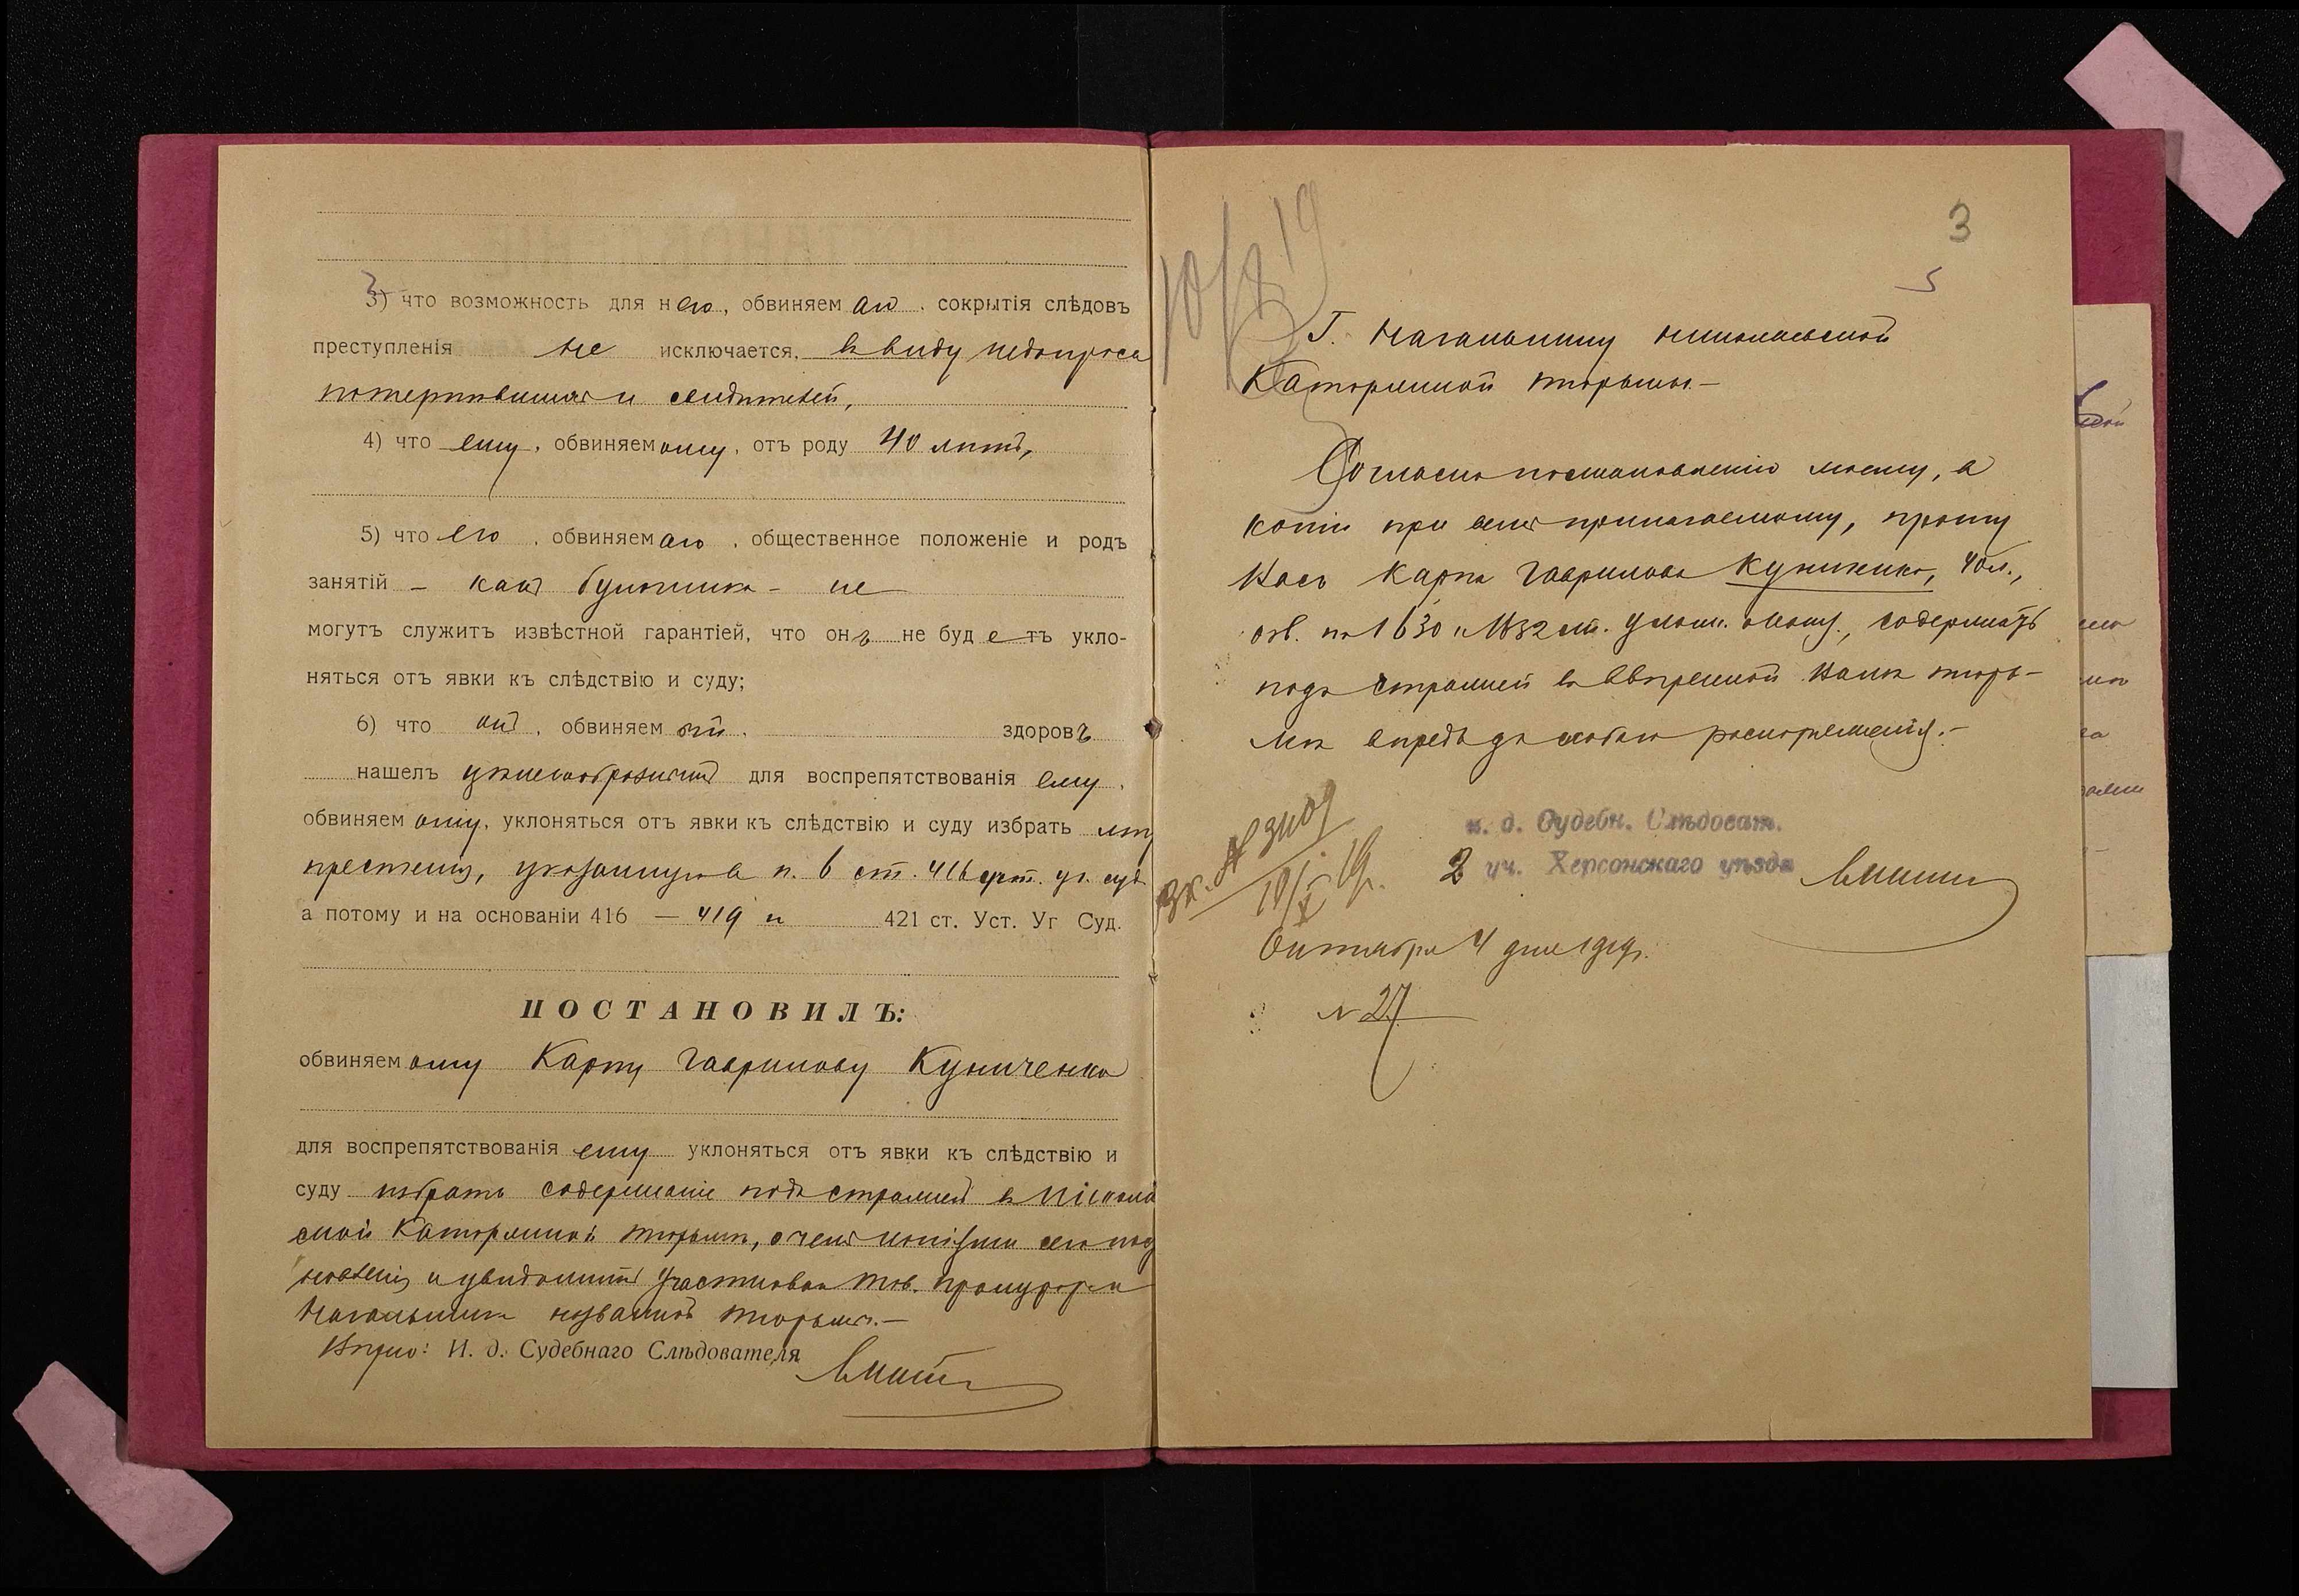 3) что возможность для него, обвиняемаго, сокрытія слѣдовъ
преступленія не исключается, ввиду недопроса
потерпѣвшихъ и свидѣтелей,
4) что ему, обвиняемому, отъ роду 40 лѣтъ,
5) что его, обвиняемаго, общественное положеніе и родъ
занятій – какъ – не
могутъ служитъ извѣстной гарантіей, что онъ не будетъ укло-
няться отъ явки къ слѣдствію и суду;
6) что онъ, обвиняемый, здоровъ
нашелъ цѣлесообразнымъ для воспрепятствованія ему,
обвиняемому, уклоняться отъ явки къ слѣдствію и суду избрать мѣру
пресѣченія, указанную в п. 6 ст. 416 уст. уг. суд.
а потому и на основаніи 416 — 419 и 421 ст. Уст. Уг Суд.
ПОСТАНОВИЛЪ:
обвиняемому Карпу Гаврилову Куниченко
для воспрепятствованія ему уклоняться отъ явки къ слѣдствію и
суду избрать содержаніе подъ стражей в Николаев
ской Каторжной тюрьмѣ, о чемъ копіями сего пос
новленія увѣдомить Участковаго Тов. прокурора и
Начальника названной тюрьмы.—
Вѣрно: И. д. Судебнаго Слѣдователя
10/X 19
3
5
Г. Начальнику Николаевской
Каторжной тюрьмы.—
Согласно постановленію моему, в
копіи при семъ прилагаемому, прошу
Васъ Карпа Гаврилова Куниченко, 40 л.,
обв. по 1630 и 1632 ст. Улож. о Наказ., содержать
подъ стражей в ввѣренной Вамъ тюрь-
мѣ впредь до особаго распоряженія.—
и. д. Судебн. Слѣдоват.
2 уч. Херсонскаго уѣзда
10/X 19 г.
Октября 4 дня 1919 г.
№ 27